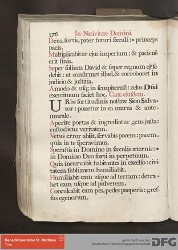 176 In Nativitate Domini
Deus, fortis, pater futuri sæculi: princeps
pacis.
Multiplicabitur ejus imperium: & pacis non
erit finis.
Super solium David & super regnum ejus
ut confirmet illud, & corroboret in
judicio & justitia.
Amodo & usque in sempiternum: zelus Domini
exercituum faciet hoc.
URbs fortitudinis nostræ Sion Salva-
tor: ponetur in ea murus & ante-
murale.
Aperite portas & ingrediatur gens justa:
custodiens veritatem.
Vetus error abiit, servabis pacem: pacem,
quia in te speravimus.
Sperastis in Domino in sæculis æternis:
in Domino Deo forti in perpetuum.
Quia incurvabit habitantes in excelso: civi-
tatem sublimem humiliabit.
Humiliabit eam usque ad terram: detra-
het eam usque ad pulverem.
Conculcabit eam pes, pedes pauperis: gres-
sus egenorum.
DFG